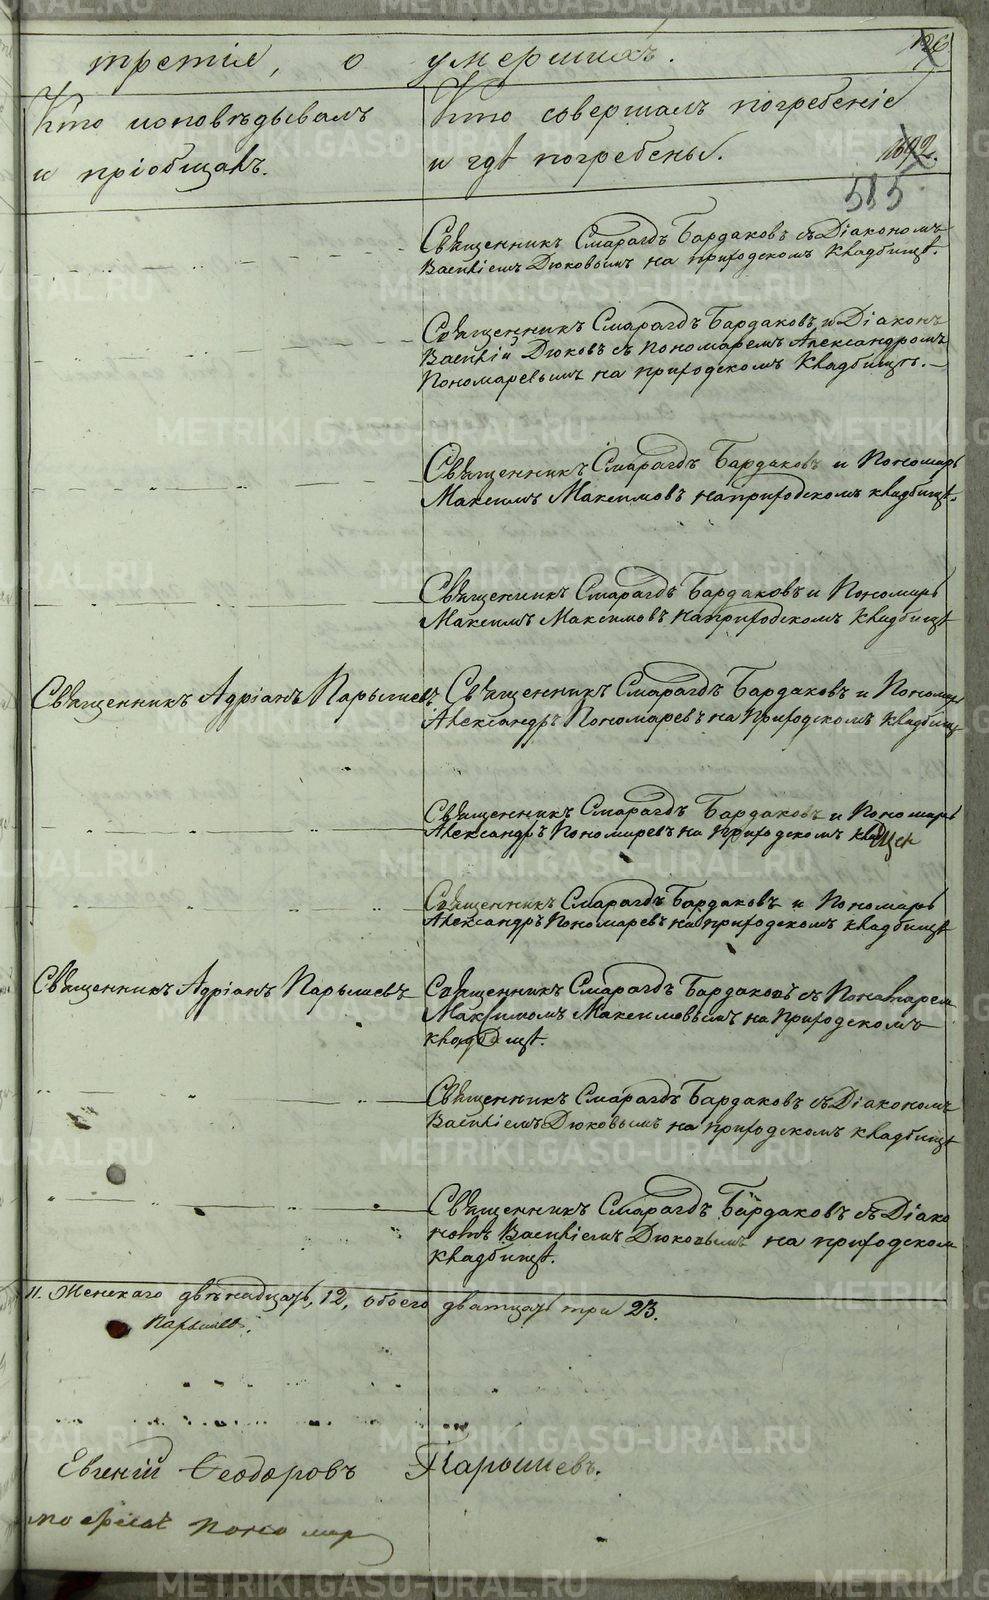 третіе, о умершихъ.
126
Кто исповѣдывалъ
и пріобщалъ.
Кто совершалъ погребеніе
и гдѣ погребены.
585
Священникъ Смарагдъ Бардаковъ съ Діакономъ
Василіемъ Дюковымъ на приходскомъ кладбищѣ.
Священникъ Смарагдъ Бардаковъ и Діаконъ
Василій Дюковъ съ Пономаремъ Александромъ
Пономаревымъ на приходскомъ кладбищѣ.
Священникъ Смарагдъ Бардаковъ и Пономарь
Максимъ Максимовъ на приходскомъ кладбищѣ.
Священникъ Смарагдъ Бардаковъ и Пономарь
Максимъ Максимовъ на приходскомъ кладбищѣ
Священникъ Адріанъ Парышевъ
Священникъ Смарагдъ Бардаковъ и Пономарь
Александръ Пономаревъ на приходскомъ кладбищѣ
Священникъ Смарагдъ Бардаковъ и Пономарь
Александръ Пономаревъ на приходскомъ
Священникъ Смарагдъ Бардаковъ и Пономарь
Александръ Пономаревъ на приходскомъ кладбищѣ
Священникъ Адріанъ Парышевъ
Священникъ Смарагдъ Бардаковъ съ Пономарем
Максимомъ Максимовымъ на приходскомъ
кладбищѣ.
Священникъ Смарагдъ Бардаковъ съ Діакономъ
Василіемъ Дюковымъ на приходскомъ кладбищѣ
Священникъ Смарагдъ Бардаковъ съ Діако
номъ Василіемъ Дюковымъ на приходском
кладбищѣ.
11. Женскаго двѣнадцать, 12, обоего дватцать три 23.
Парышев.
Евгеній Ѳеодоровъ Парышевъ.
поно мар
METRIKI.GASO-URAL.RU